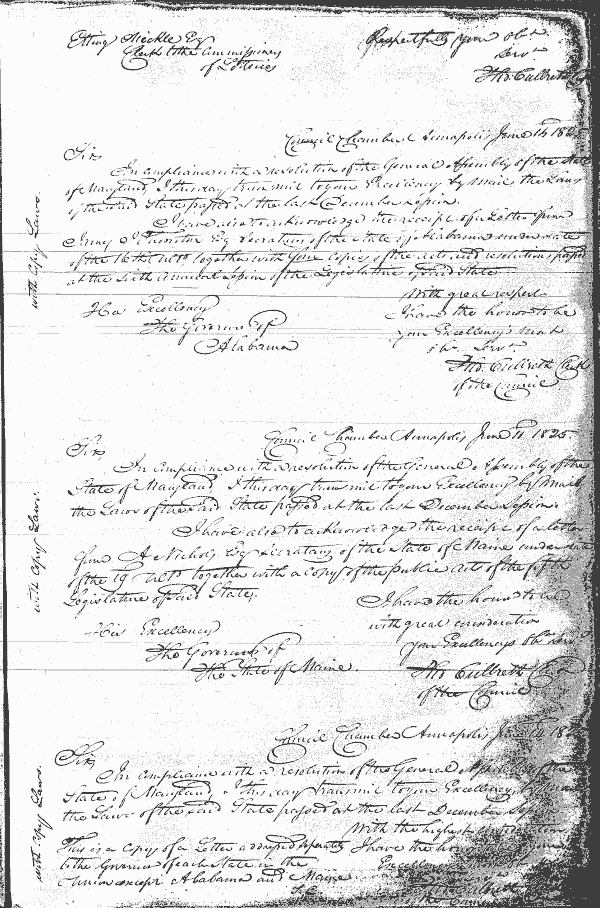 Etting Meckle Esq
Clerk to the Commissioners
of Lotteries
Respectfully your obt.
Servt.
Tho. Culbreth
Council Chamber Annapolis June 14 1825
Sir,
In compliance with a resolution of the General Assembly of the State
of Maryland, I this day transmit to your Excellency by mail the Laws
of the said State passed at the last December Session.
I have also to acknowledge the receipt of a Letter from
Esq Secretary of the State of Alabama under date
of the 16th Ulto. together with four copies of the acts and resolutions passed
at the sixth annual Session of the Legislature of said State
with Copy Laws.
With great respect
I have the honor to be
your Excellency's most
obt. Servt.
Tho. Culbreth Clerk
of the Council
His Excellency
The Governor of
Alabama
Council Chamber Annapolis June 11 1825
Sir,
In compliance with a resolution of the General Assembly of the
State of Maryland I this day transmit to your Excellency by mail
the Laws of the said State passed at the last December Session.
I have also to acknowledge the receipt of a letter
from A Nichols Esq Secretary of the State of Maine under date
of the 19 Ulto. together with a copy of the public Acts of the fifth
Legislature of said State.
with Copy Laws.
I have the honor to be
with great consideration
your Excellency's Obt. Servt.
Tho. Culbreth Clk
of the Council
His Excellency
The Governor of
The State of Maine.
Council Chamber Annapolis June 14 182
Sir,
In compliance with a resolution of the General Assembly of the
State of Maryland, I this day transmit to your Excellency by
the Laws of the said State passed at the last December
With the highest consideration
I have the honor your
Excellency's
Tho Culbreth
the Council
This is a Copy of a Letter addressed separately
to the Governor of each State in the
Union except Alabama and Maine
with Copy Laws.